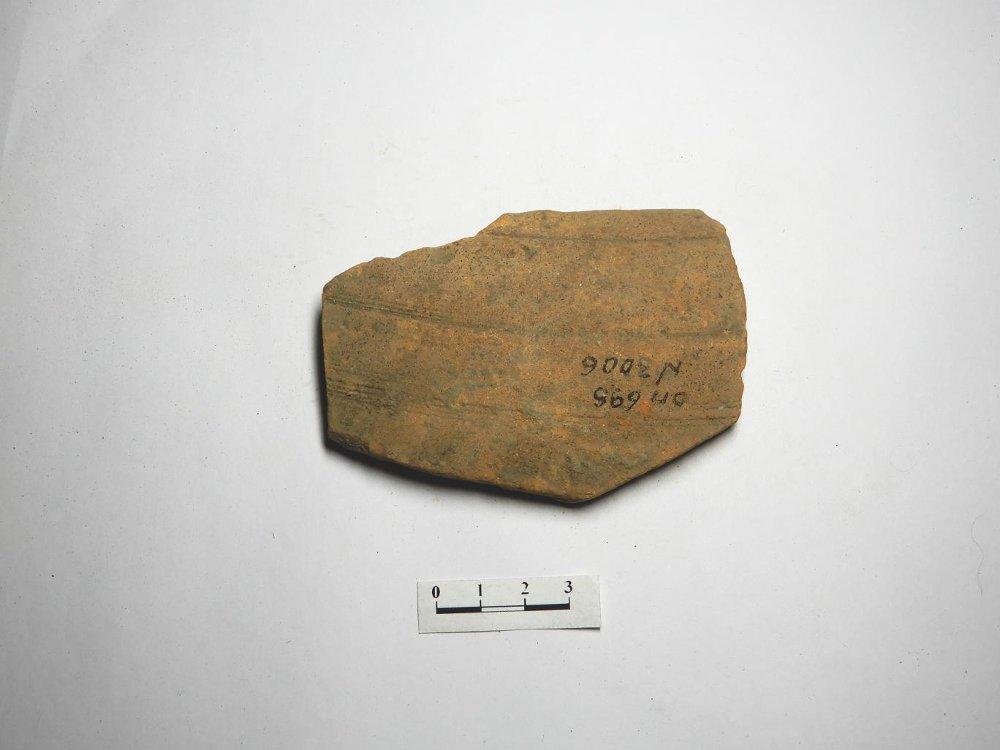 ОП 695
N3006
0 1 2 3